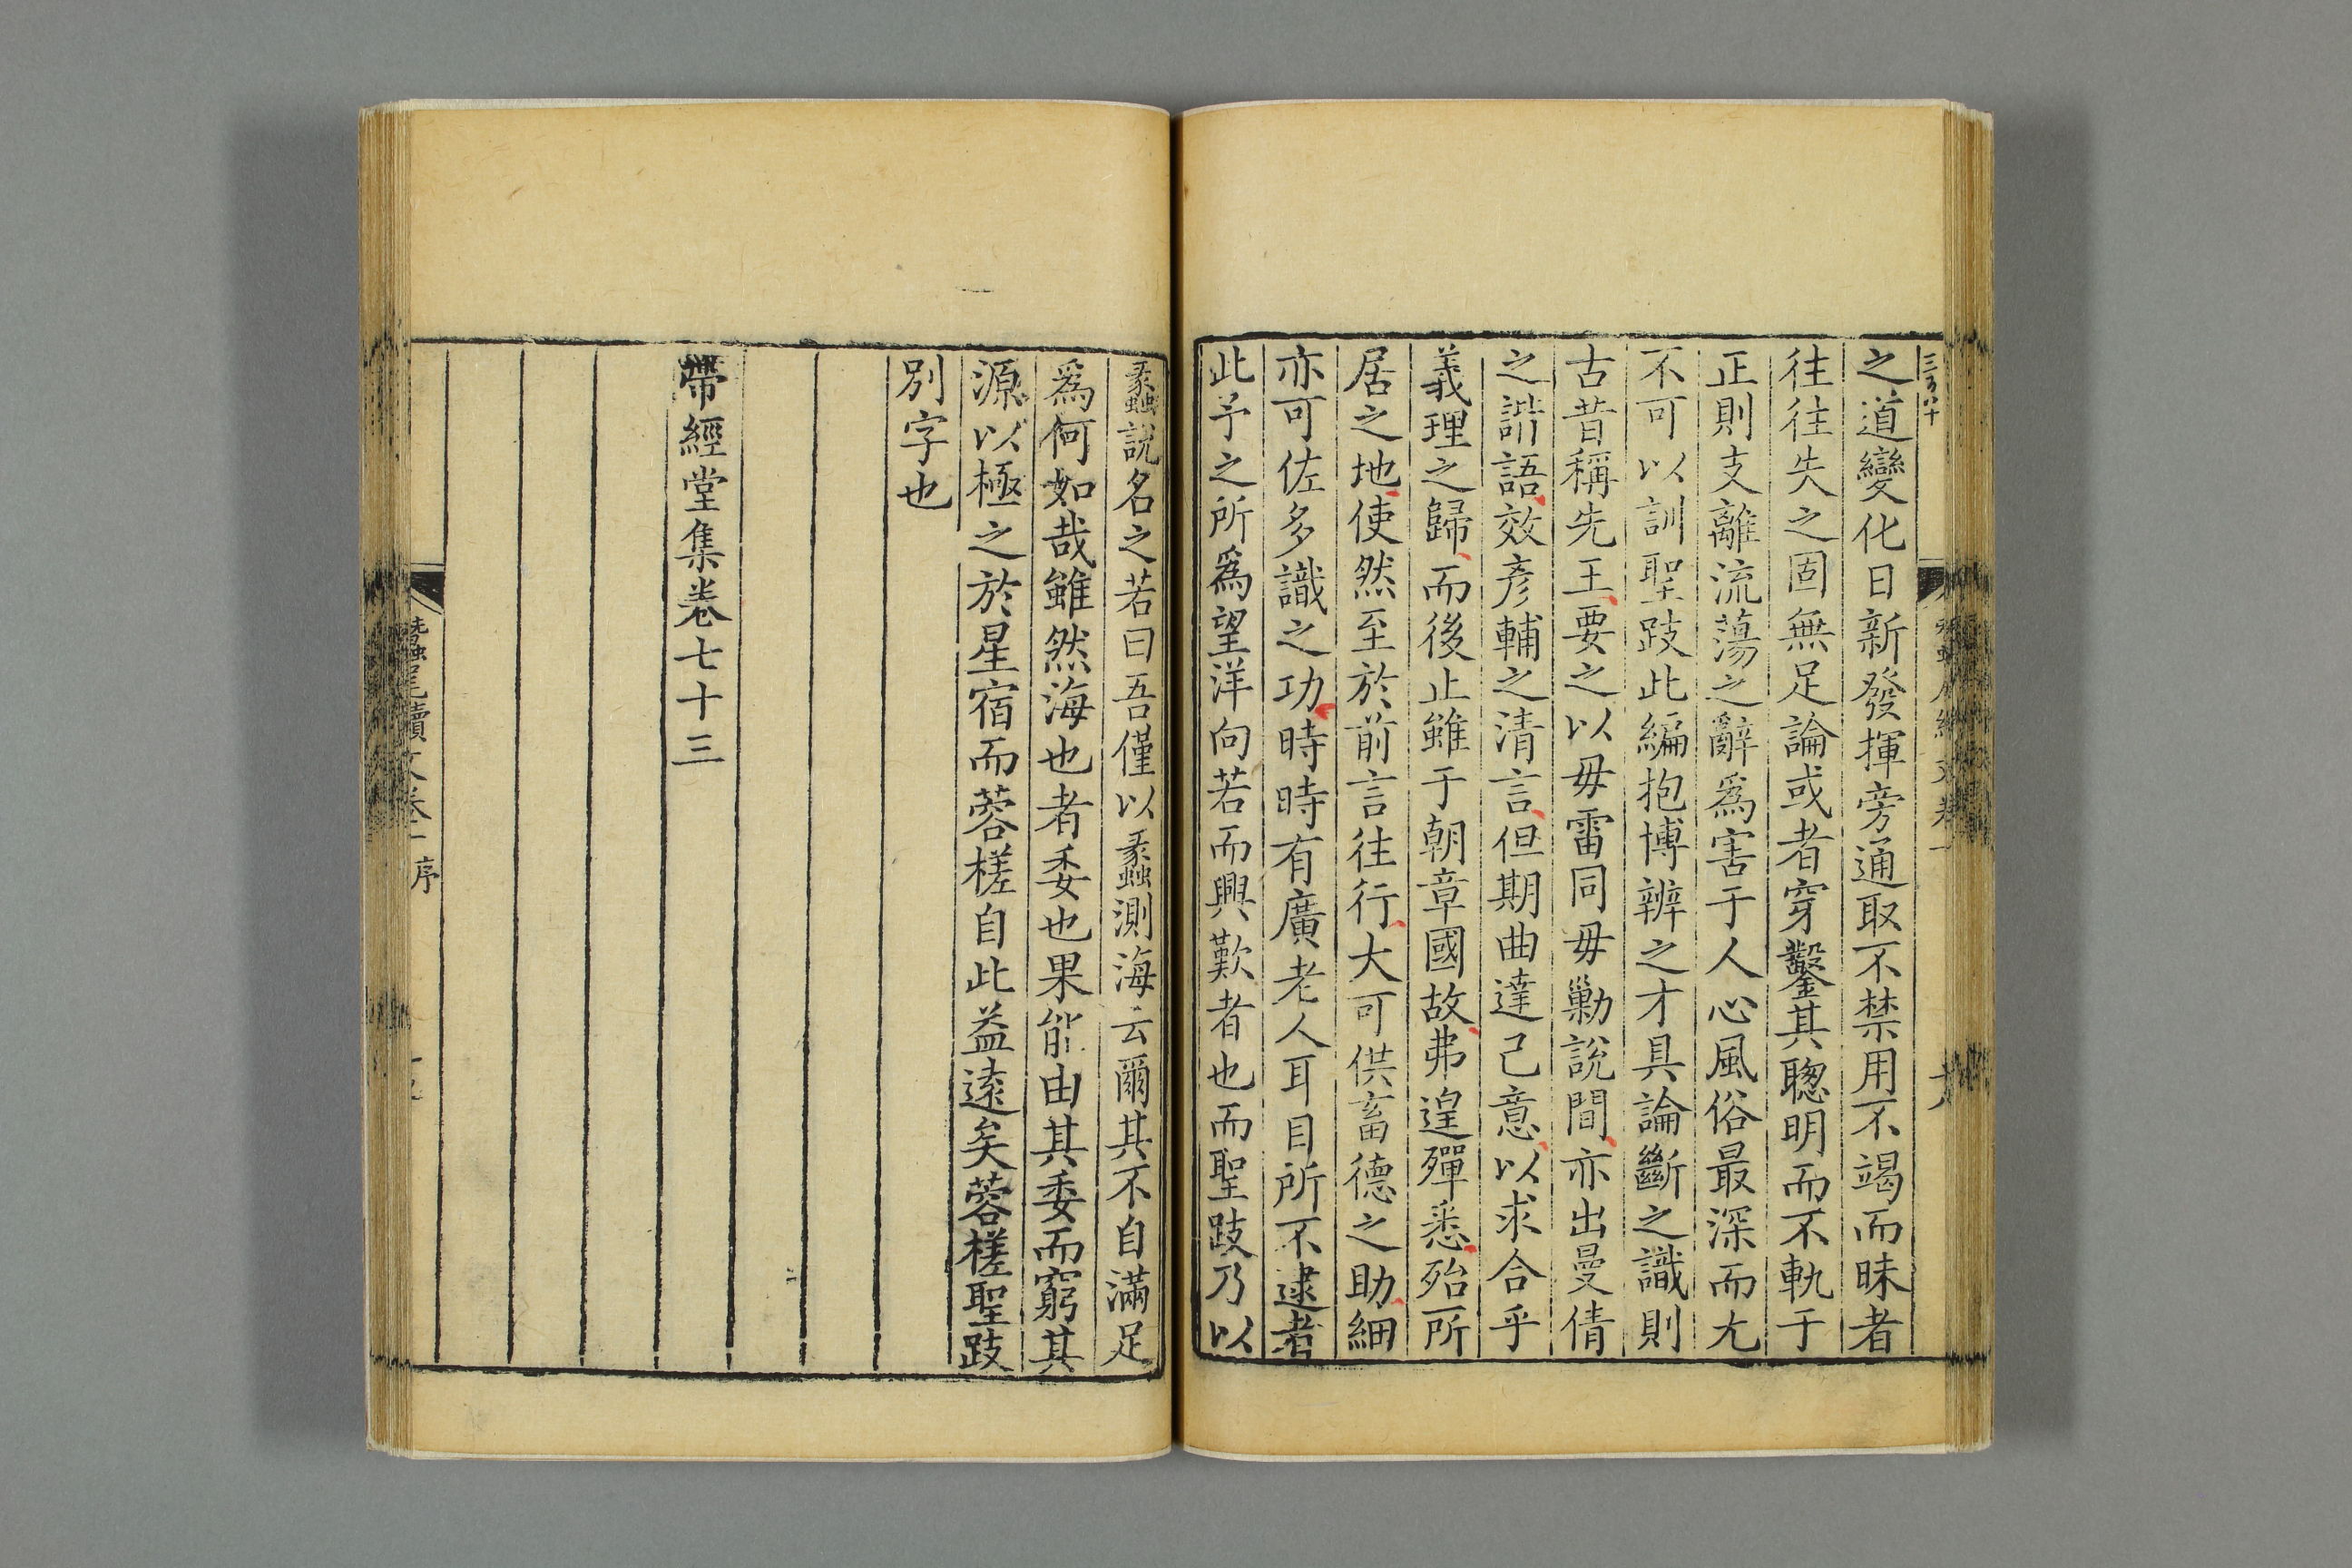 之道變化日新發揮旁通取不禁用不竭而昧者
往往失之固無足論或者穿鑿其聰明而不軌于
正則支離流蕩之辭爲害于人心風俗最深而尢
不可以訓聖跂此編抱博辨之才具論斷之識則
古昔稱先王要之以毋雷同毋勦說間亦出曼倩
之諧語效彥輔之清言但期曲達己意以求合乎
義理之歸而後止雖于朝章國故弗遑殫悉殆所
居之地使然至於前言往行大可供畜德之助細
亦可佐多識之功時時有廣老人耳目所不逮者
此予之所爲望洋向若而興歎者也而聖跂乃以
蠡說名之若曰吾僅以蠡測海云爾其不自滿足
爲何如哉雖然海也者委也果能由其委而窮其
源以極之於星宿而蓉槎自此益遠矣蓉槎聖跂
別字也
帶經堂集卷七十三
蠶尾續文卷一 序